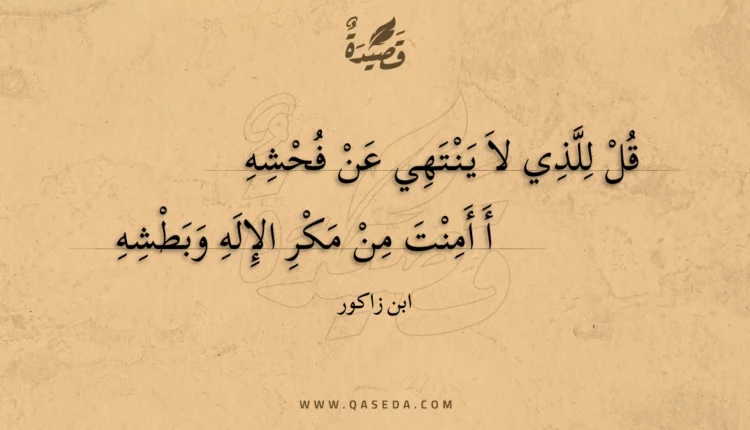 قَصِيدَةٌ
قُلْ لِلَّذِي لاَ يَنْتَهِي عَنْ فُحْشِهِ
أَ أَمِنْتَ مِنْ مَكْرِ الإِلَهِ وَبَطْشِهِ
ابن زاكور
WWW.QASEDA.COM